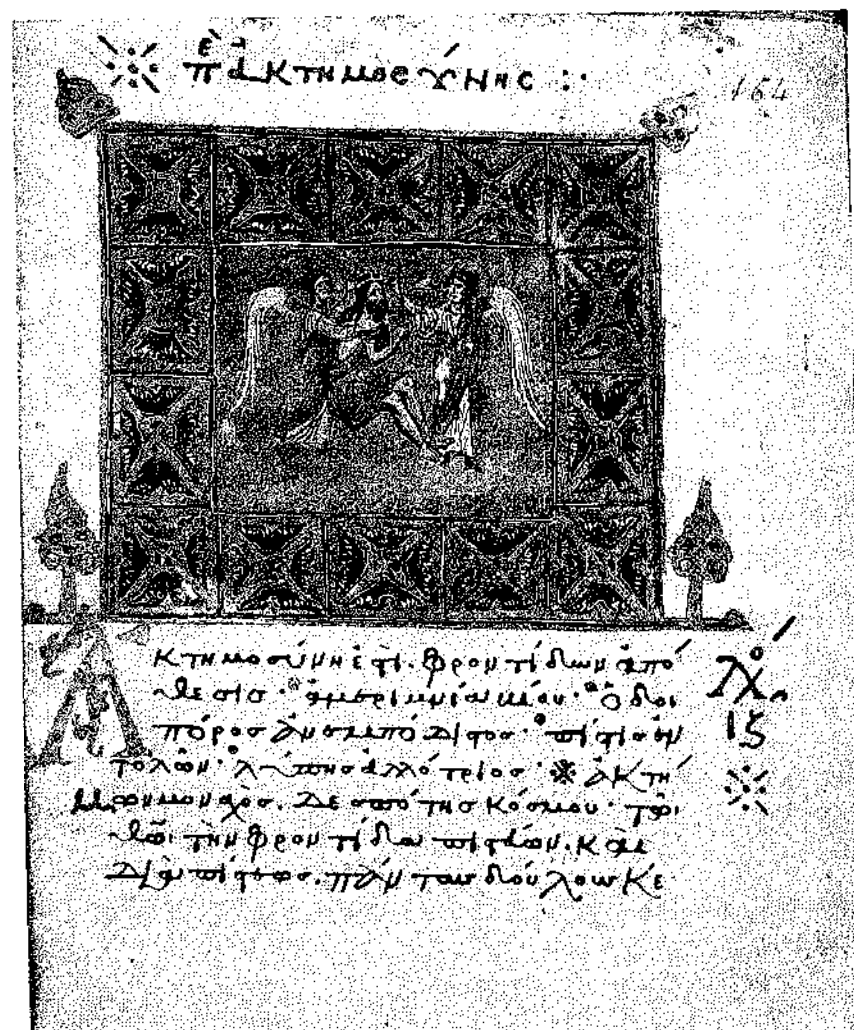 πε ἀκτημοσύνης :·
164
Ἀκτημοσύνη ἐστί. φροντίδων ἀπό
θεσις · ἀμεριμνία βίου · ὁδοι
πόρος ἀνεμπόδιστος · πίστις ἐν
τολῶν · λύπης ἀλλότριος · ἀκτή
μων μοναχὸς. δεσπότης κόσμου · τῶι
θῶι τὴν φροντίδα πιστεύων. καὶ
διὰ πίστεως. πάντας δούλους κε
λό
ιζ